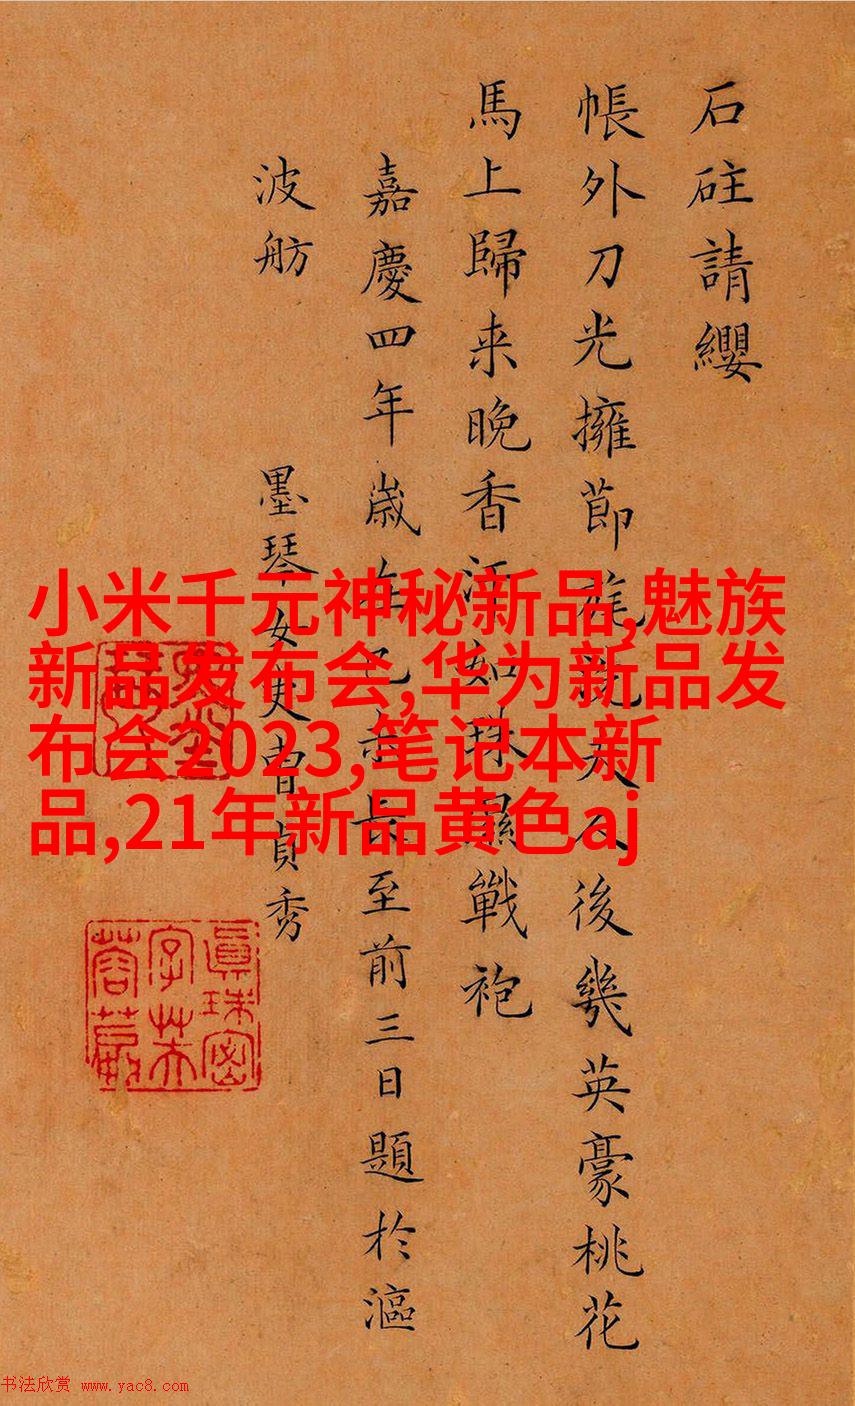 石砫請纓
帳外刀光擁節旄夫人後幾英豪桃花
馬上歸来晚香汗如珠濕戰袍
嘉慶四年歲在己未長至前三日題於漚
波舫 墨琴女史曹貞秀
眞珠密
字芙
蓉
小米千元神秘新品,魅族
新品发布会,华为新品发
布会2023,笔记本新
品,21年新品黄色aj
书法欣赏 www.yac8.com